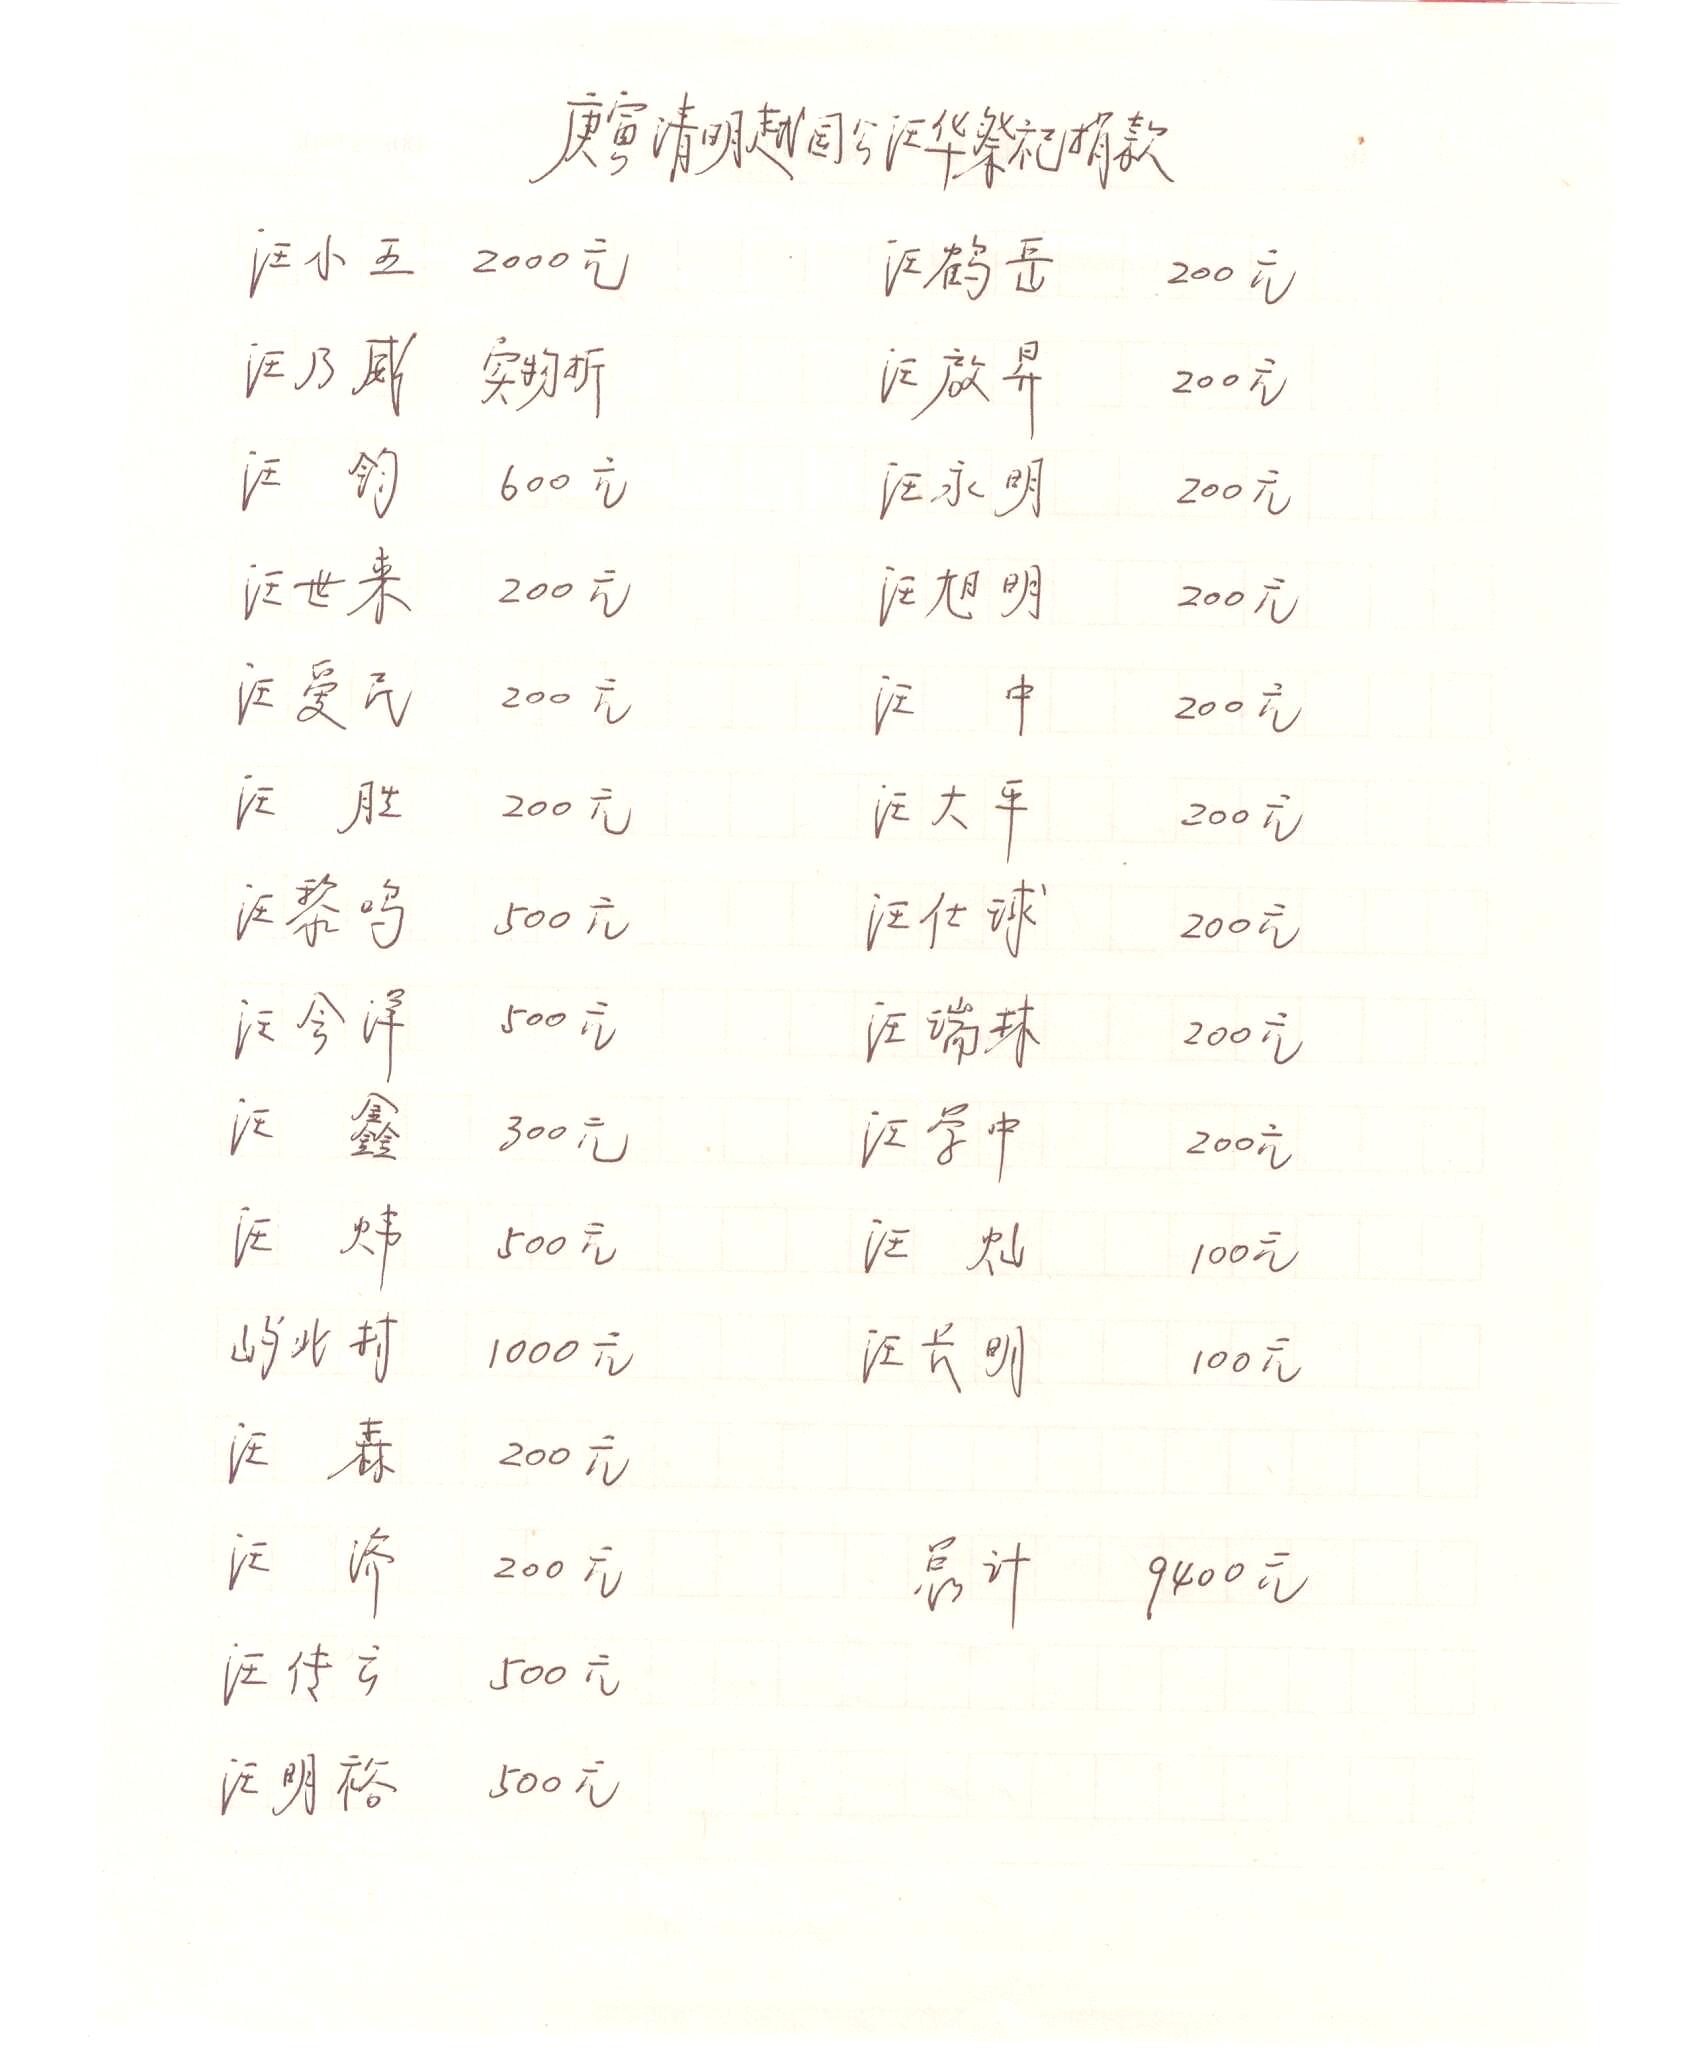 庚寅清明越国公汪华祭祀捐款
汪小五 2000元 汪鹤岳 200元
汪乃威 实物折 汪啟昇 200元
汪 钧 600元 汪永明 200元
汪世来 200元 汪旭明 200元
汪爱民 200元 汪 中 200元
汪 胜 200元 汪大平 200元
汪黎鸣 500元 汪仕球 200元
汪今洋 500元 汪瑞球 200元
汪 鑫 300元 汪学中 200元
汪 炜 500元 汪 灿 100元
屿北村 1000元 汪长明 100元
汪 森 200元
汪 济 200元 总计 9400元
汪传云 500元
汪明裕 500元